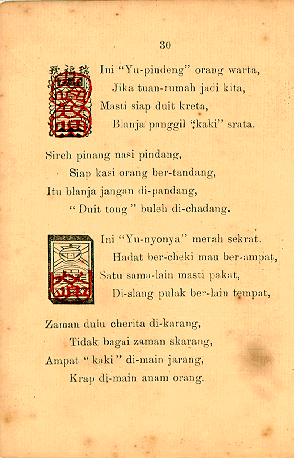 30
Ini "Yu-pindeng" orang warta,
Jika tuan-rumah jadi kita,
Masti siap duit kreta,
Blanja panggil "kaki" srata.
Sireh pinang nasi pindang,
Siap kasi orang ber-tandang,
Itu blanja jangan di-pandang,
"Duit tong" buleh di-chadang.
Ini "Yu-nyonya" merah sekrat.
Hadat ber-cheki mau ber-ampat,
Satu sama-lain masti pakat,
Di-slang pulak ber-lain tempat,
Zaman dulu cherita di-karang,
Tidak bagai zaman skarang,
Ampat "kaki" di-main jarang,
Krap di-main anam orang.